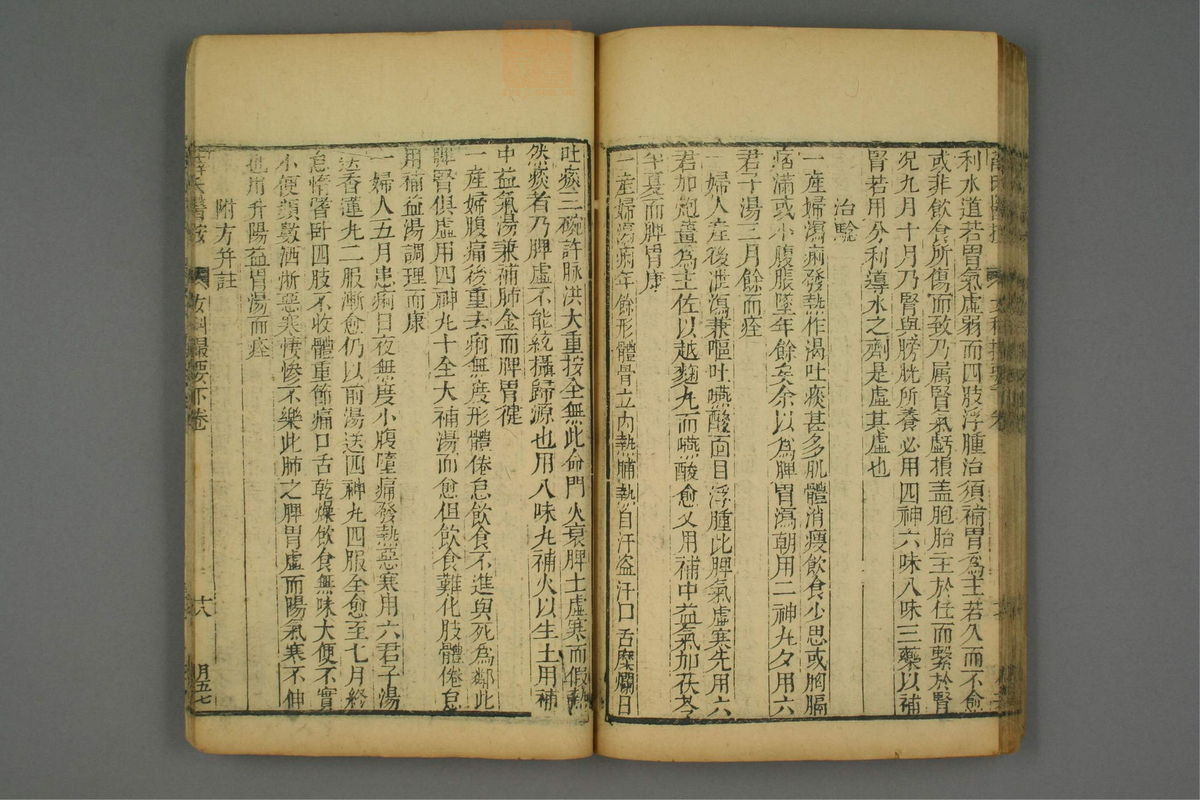 利水道若胃氣虛弱而四肢浮腫治須補胃爲主若久而不愈
或非飲食所傷而致乃属腎氣虧損盖胞胎主於任而繫於腎
况九月十月乃腎與膀胱所養必用四神六味八味三藥以補
腎若用分利導水之劑是虛其虛也
治驗
一產婦瀉痢發熱作渴吐痰甚多肌體消瘦飲食少思或胸膈
痞滿或小腹脹墜年餘矣余以爲脾胃瀉朝用二神丸夕用六
君子湯三月餘而痊
一婦人產後泄瀉兼嘔吐嚥酸面目浮腫此脾氣虛寒先用六
君加炮薑爲主佐以越麴丸而嚥酸愈又用補中益氣加茯苓
半夏而脾胃康
一產婦瀉痢年餘形體骨立内熱晡熱自汗盗汗口舌糜爛日
吐痰三碗許脉洪大重按全無此命門火衰脾土虛寒而假熱
然痰者乃脾虛不能統攝歸源也用八味丸補火以生土用補
中益氣湯兼補肺金而脾胃健
一產婦腹痛後重去痢無度形體倦怠飲食不進與死爲鄰此
脾腎俱虛用四神丸十全大補湯而愈但飲食難化肢體倦怠
用補益湯調理而康
一婦人五月患痢日夜無度小腹墜痛發熱惡寒用六君子湯
送香連丸二服漸愈仍以前湯送四神丸四服全愈至七月終
怠惰嗜卧四肢不收體重節痛口舌乾燥飲食無味大便不實
小便頻數洒淅惡寒悽慘不樂此肺之脾胃虛而陽氣寒不伸
也用升陽益胃湯而痊
附方并註
薛氏醫按
女科撮要下卷
十八
月五七